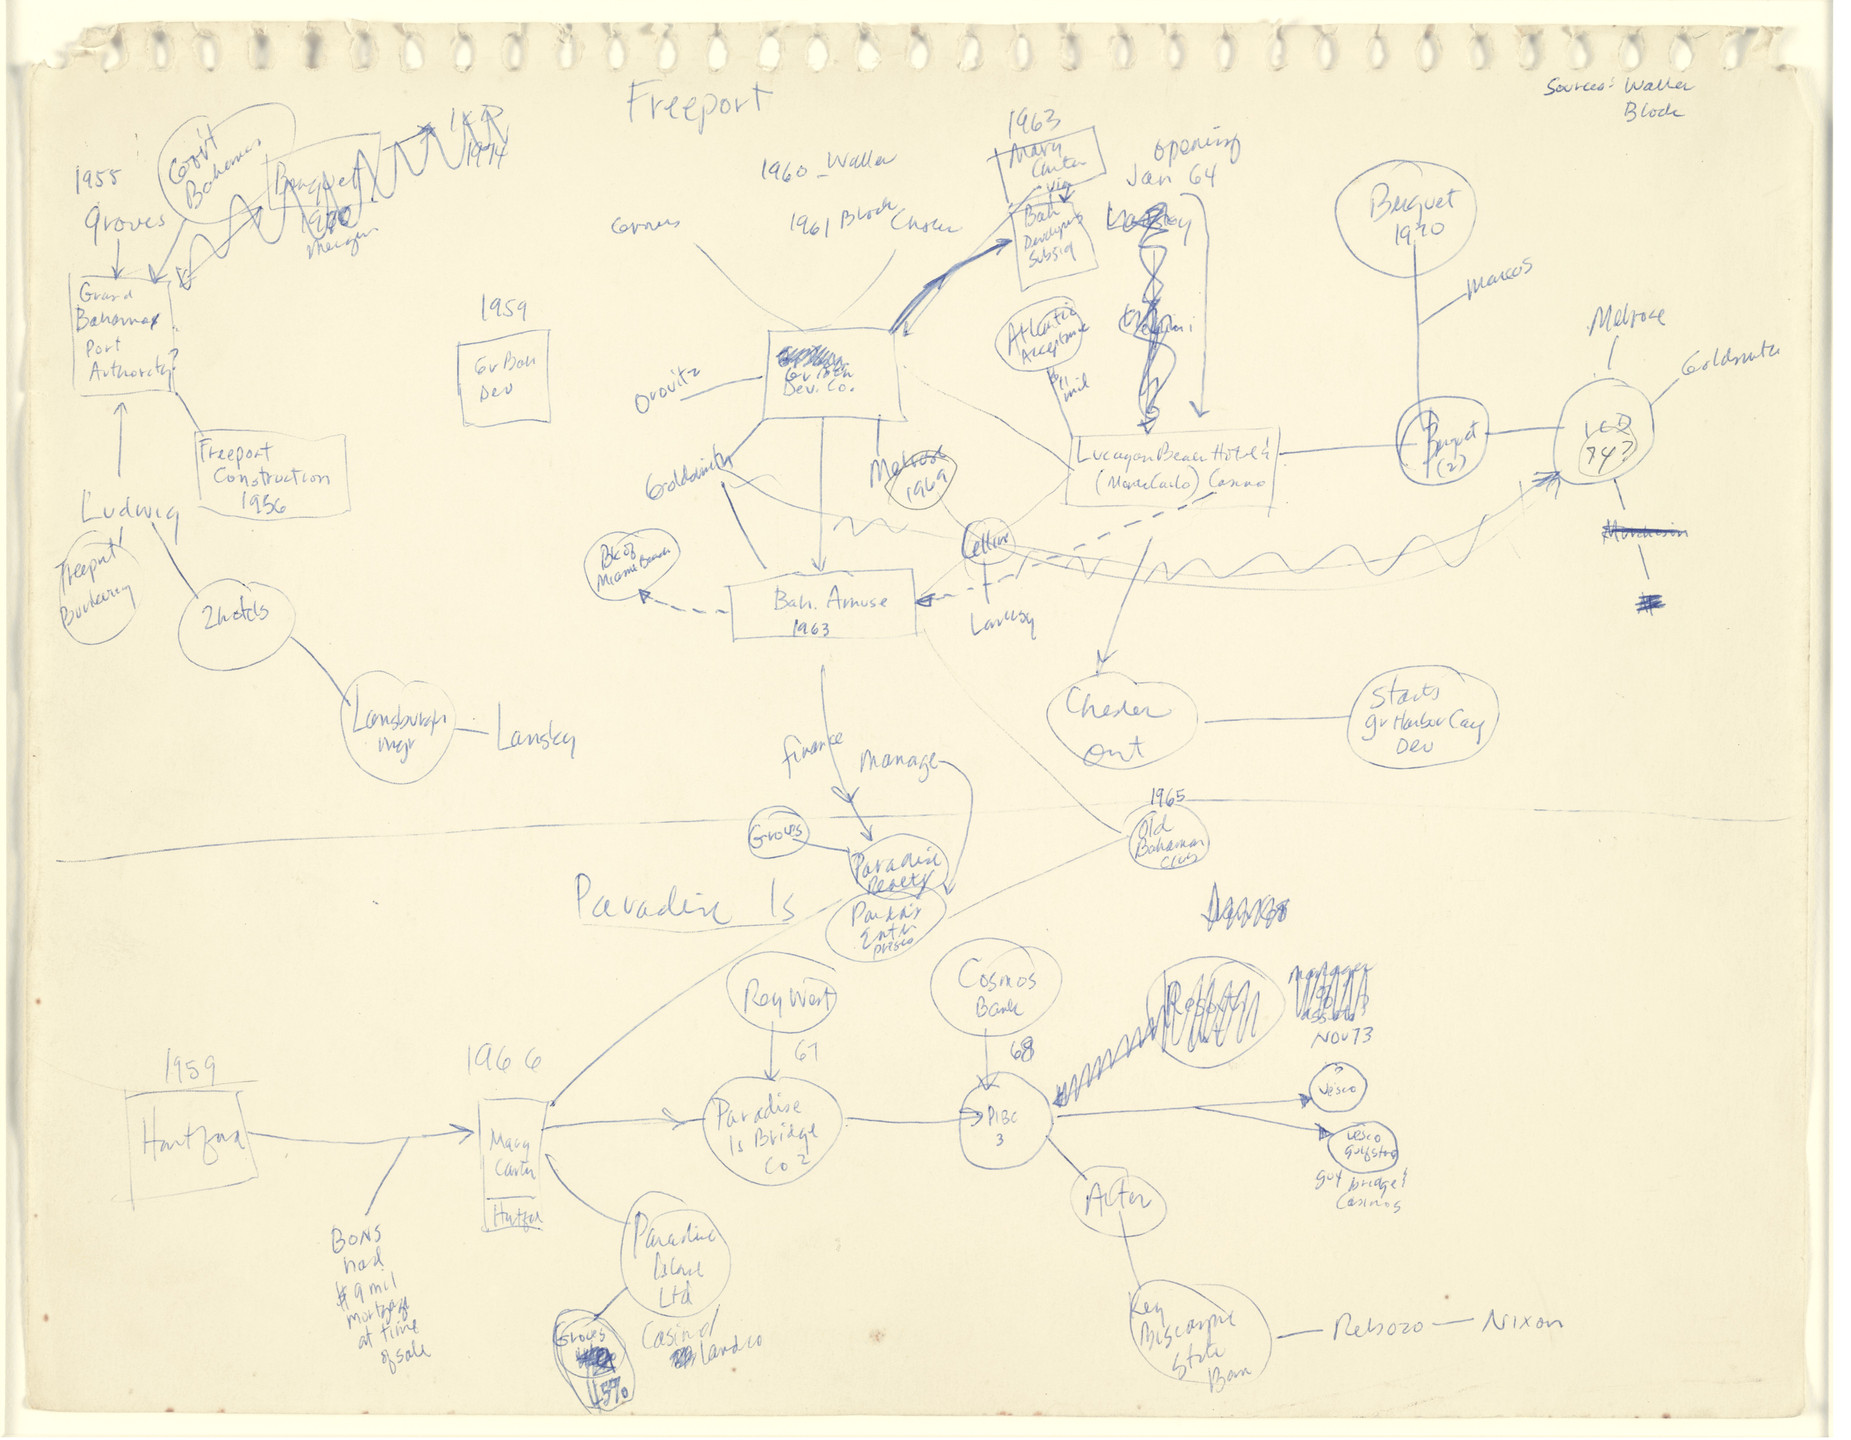 Freeport
Sources: Waller
Block
1955
Groves
Gov't
Bahamas
Benguet
1970
merger
1974
1960 - Waller
1961 Block
Groves
Chesler
1963
Mary
Carter
via
Bah
Developers
Subsid
opening
Jan 64
Benguet
1970
Marcos
Melrose
Goldsmith
Grand
Bahamas
Port
Authority?
1959
Gr Bah
Dev
Gr Bah
Dev. Co.
Orovitz
Atlantic
Acceptance
11
mil
Lucayan Beach Hotel &
(Monte Carlo) Casino
Benguet
(2)
74?
Freeport
Construction
1956
Ludwig
Freeport
Bunkering
2 hotels
Lansburgh
mgr
Lansky
Goldsmith
Melrose
1969
Cellini
Lansky
Bk of
Miami Beach
Bah. Amuse
1963
Murchison
Chesler
out
Starts
Gr Harbor Cay
Dev
finance
manage
Groves
Paradise
Realty
Paradis
Enter
prises
1965
Old
Bahamian
Club
Paradise Is
Rey West
67
Cosmos
Bank
68
Resorts
manager
Nov 73
1959
Hartford
1966
Mary
Carter
Hartford
Paradise
Is Bridge
Co 2
PIBC
3
?
Vesco
Vesco
Gulfstre
buy bridge &
Casinos
BONS
had
$9 mil
mortgage
at time
of sale
Paradise
Island
Ltd
Casino/
landco
Groves
45%
Key
Biscayne
State
Ban
Rebozo — Nixon